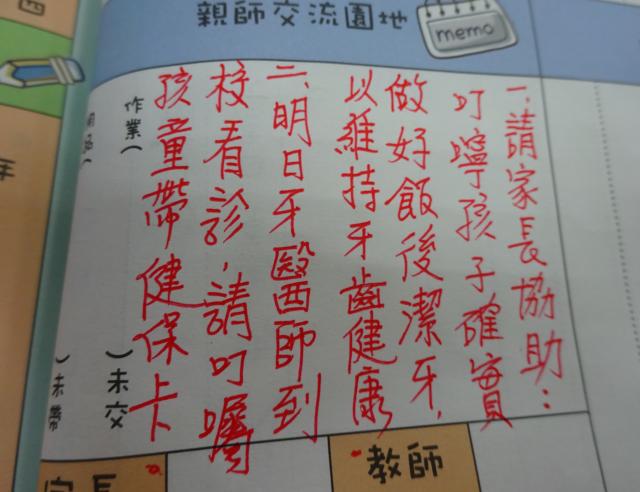 親師交流園地
memo
一、請家長協助：
叮嚀孩子確實
做好飯後潔牙，
以維持牙齒健康
二、明日牙醫師到
校看診，請叮囑
孩童帶健保卡
作業（
）未交
）未帶
教師
家長
四
年